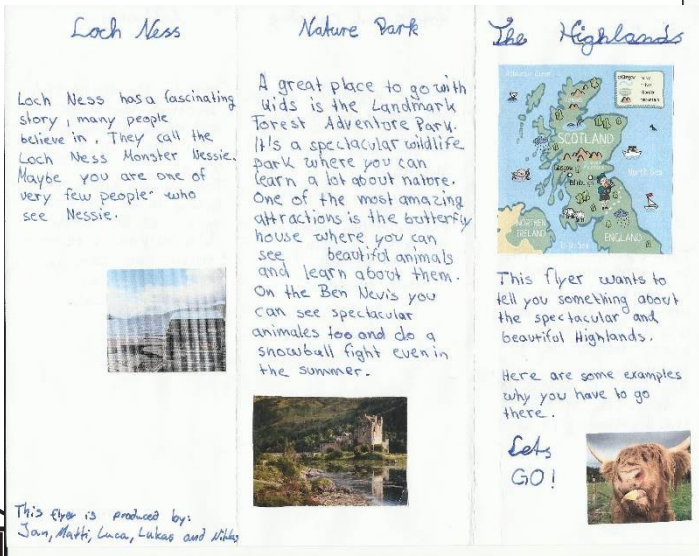 Loch Ness
Loch Ness has a fascinating
story, many people
believe in. They call the
Loch Ness Monster Nessie.
Maybe you are one of
very few people who
see Nessie.
This flyer is produced by:
Jan, Matti, Luca, Lukas and Niklas
Nature Park
A great place to go with
kids is the Landmark
Forest Adventure Park.
It's a spectacular wildlife
park where you can
learn a lot about nature.
One of the most amazing
attractions is the butterfly
house where you can
see beautiful animals
and learn about them.
On the Ben Nevis you
can see spectacular
animales too and do a
snowball fight even in
the summer.
The Highlands
SCOTLAND
North Sea
NORTHERN
IRELAND
ENGLAND
This flyer wants to
tell you something about
the spectacular and
beautiful Highlands.
Here are some examples
why you have to go
there.
Lets
GO!